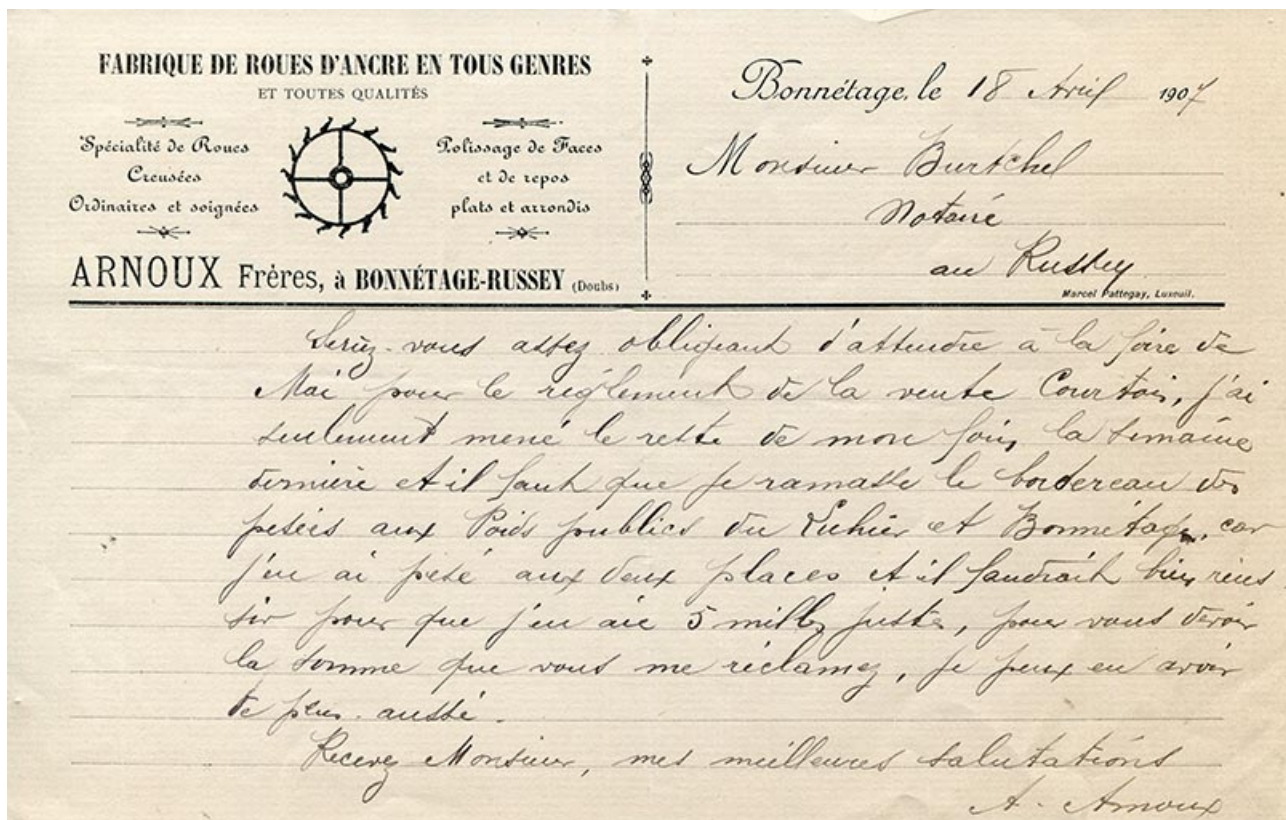 FABRIQUE DE ROUES D'ANCRE EN TOUS GENRES
ET TOUTES QUALITÉS
Spécialité de Roues
Creusées
Ordinaires et soignées
Polissage de Faces
et de repos
plats et arrondis
ARNOUX Frères, à BONNÉTAGE-RUSSEY (Doubs)
Bonnétage, le 18 Avril 1907
Monsieur Burtchel
Notaire
au Russey
Marcel Pattegay, Luxeuil.
Seriez-vous assez obligeant d'attendre à la foire de
Mai pour le réglement de la vente Courtois, j'ai
seulement mené le reste de mon foin la semaine
dernière et il faut que je ramasse le bordereau des
pesées aux Poids publics du Luhier et Bonnétage, car
j'en ai pesé aux deux places et il faudrait bien réus
sir pour que j'en aie 5 milles juste, pour vous devoir
la somme que vous me réclamez, je peux en avoir
de plus aussi.
Recevez Monsieur, mes meilleures salutations
A. Arnoux